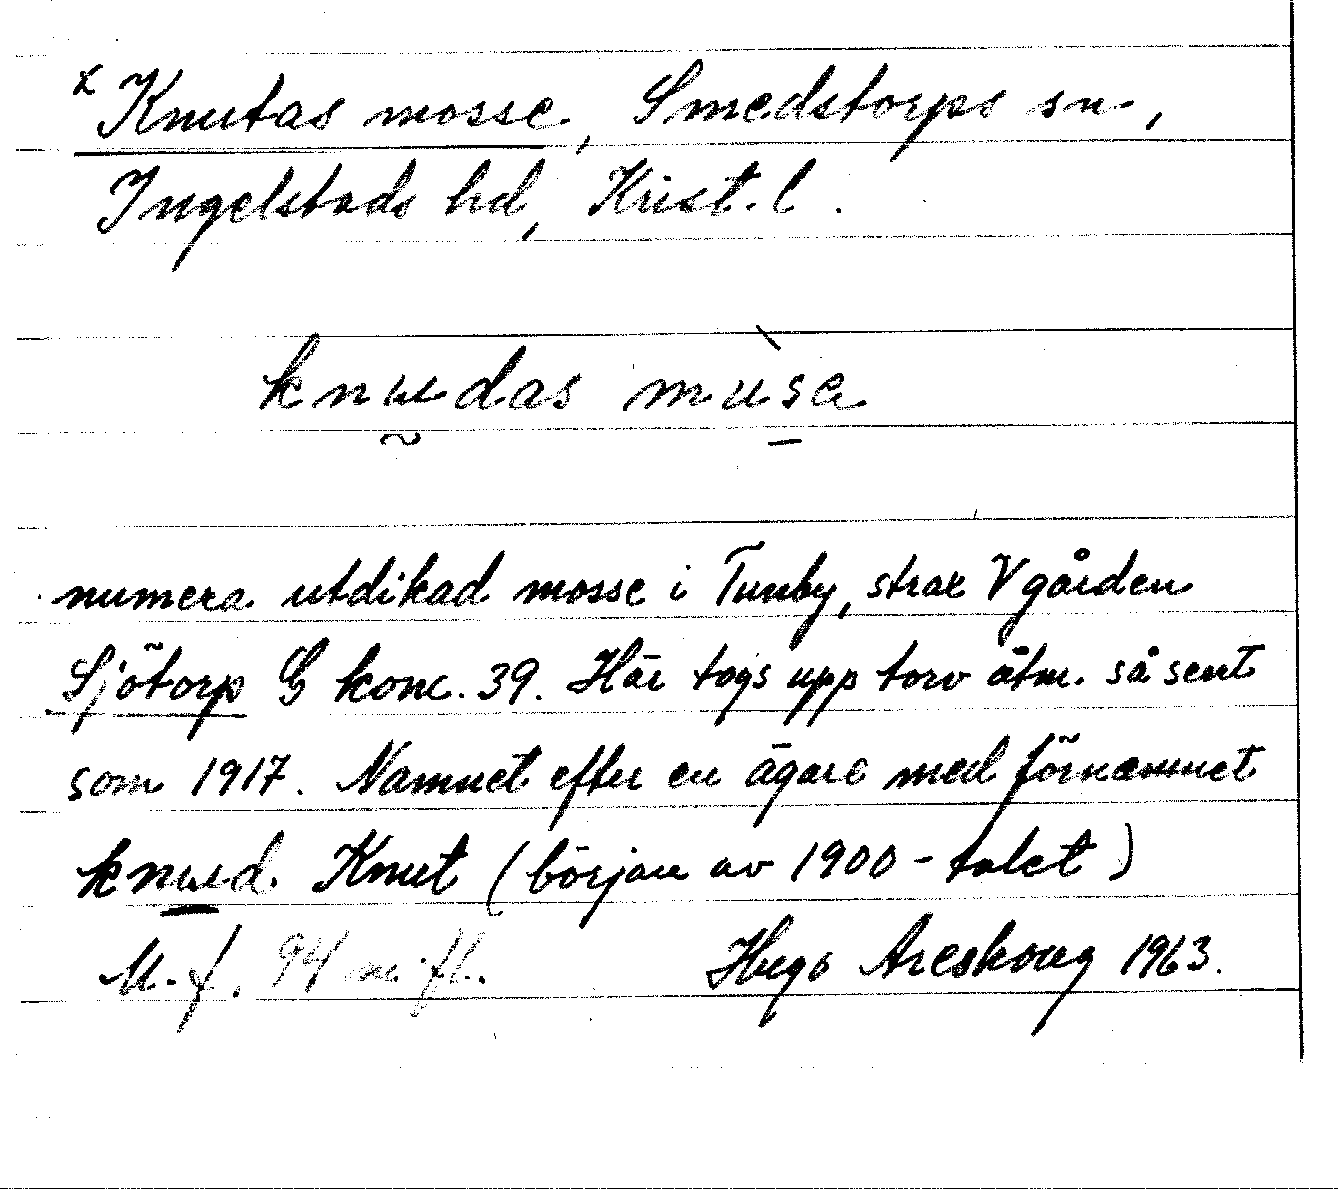 x Knutas mosse, Smedstorps sn,
Ingelstads hd, Krist. l.
knɯdas mùsa
numera utdikad mosse i Tunby, strax V gården
Sjötorp G konc. 39. Här togs upp torv åtm. så sent
som 1917. Namnet efter en ägare med förnamnet
knɯd Knut (början av 1900-talet)
M. f. 94 m. fl. Hugo Areskoug 1963.